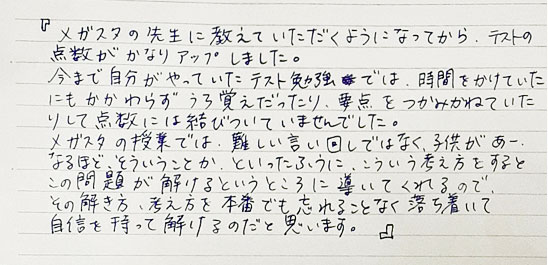 『メガスタの先生に教えていただくようになってから、テストの
点数がかなりアップしました。
今まで自分がやっていたテスト勉強では、時間をかけていた
にもかかわらずうろ覚えだったり、要点をつかみかねていた
りして点数には結びついていませんでした。
メガスタの授業では、難しい言い回しではなく、子供があー、
なるほど、そういうことか、といったふうに、こういう考え方をすると
この問題が解けるというところに導いてくれるので、
その解き方、考え方を本番でも忘れることなく落ち着いて
自信を持って解けるのだと思います。』